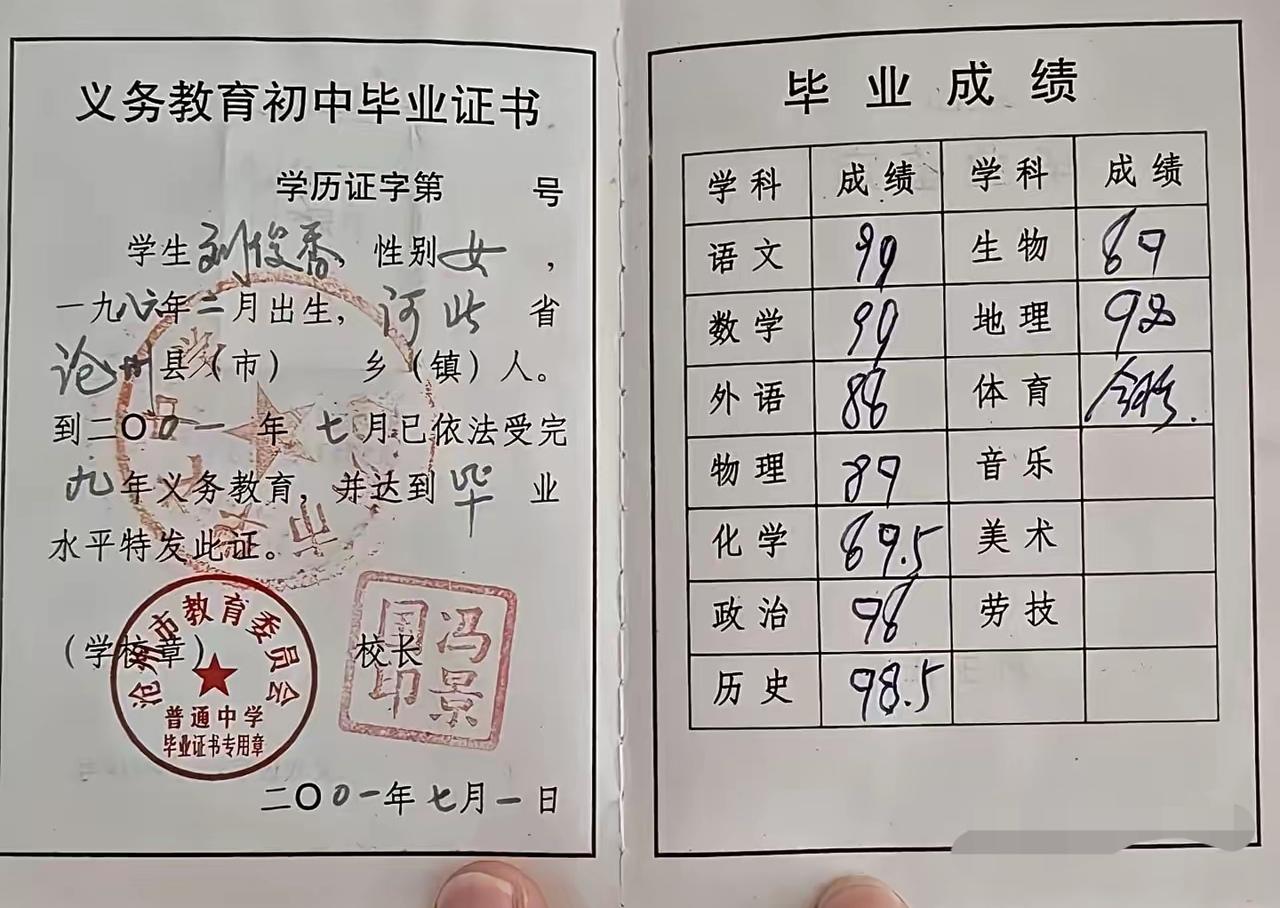 义务教育初中毕业证书
学历证字第 号
学生刘俊香，性别女，
一九八六年二月出生，河北省
沧州县（市） 乡（镇）人。
到二〇〇一年七月已依法受完
九年义务教育，并达到毕业
水平特发此证。
（学校章） 校长
冯景国印
沧州市教育委员会
普通中学
毕业证书专用章
二〇〇一年七月一日
毕业成绩
学科 成绩 学科 成绩
语文 99 生物 89
数学 90 地理 98
外语 88 体育 合格.
物理 89 音乐
化学 89.5 美术
政治 98 劳技
历史 98.5